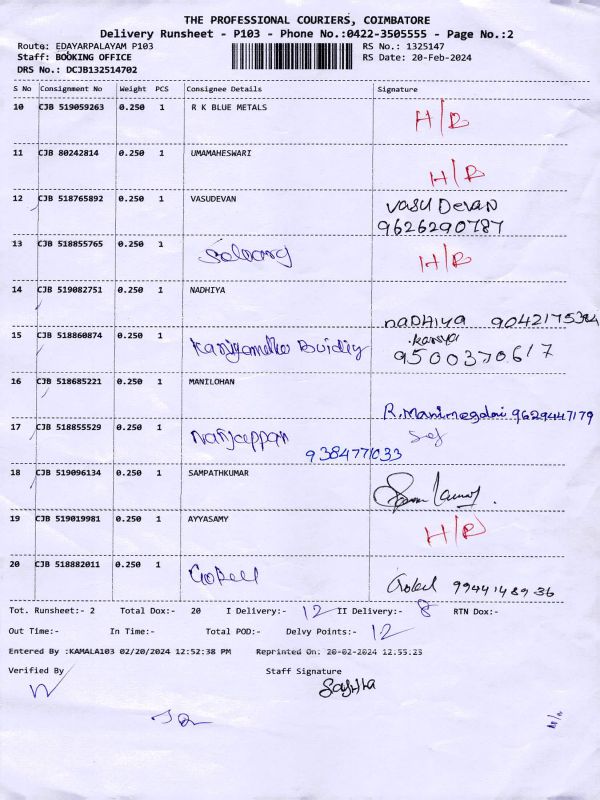 THE PROFESSIONAL COURIERS, COIMBATORE
Delivery Runsheet - P103 - Phone No.:0422-3505555 - Page No.:2
Route: EDAYARPALAYAM P103 RS No.: 1325147
Staff: BOOKING OFFICE RS Date: 20-Feb-2024
DRS No.: DCJB132514702
S No Consignment No Weight PCS Consignee Details Signature
10 CJB 519059263 0.250 1 R K BLUE METALS H/R
11 CJB 80242814 0.250 1 UMAMAHESWARI H/R
12 CJB 518765892 0.250 1 VASUDEVAN vasu Devan
9626290787
13 CJB 518855765 0.250 1 H/R
14 CJB 519082751 0.250 1 NADHIYA
naDHiya
15 CJB 518860874 0.250 1 kanya
9500370617
16 CJB 518685221 0.250 1 MANILOHAN
R.Manimegalai 9629447179
17 CJB 518855529 0.250 1 Nanjappan
9384771033
18 CJB 519096134 0.250 1 SAMPATHKUMAR
19 CJB 519019981 0.250 1 AYYASAMY H/R
20 CJB 518882011 0.250 1
9944148936
Tot. Runsheet:- 2 Total Dox:- 20 I Delivery:- 12 II Delivery:- 8 RTN Dox:-
Out Time:- In Time:- Total POD:- Delvy Points:- 12
Entered By :KAMALA103 02/20/2024 12:52:38 PM Reprinted On: 20-02-2024 12:55:23
Verified By Staff Signature